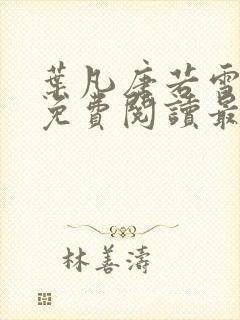 葉凡唐若雪
免費閱讀最
林善濤